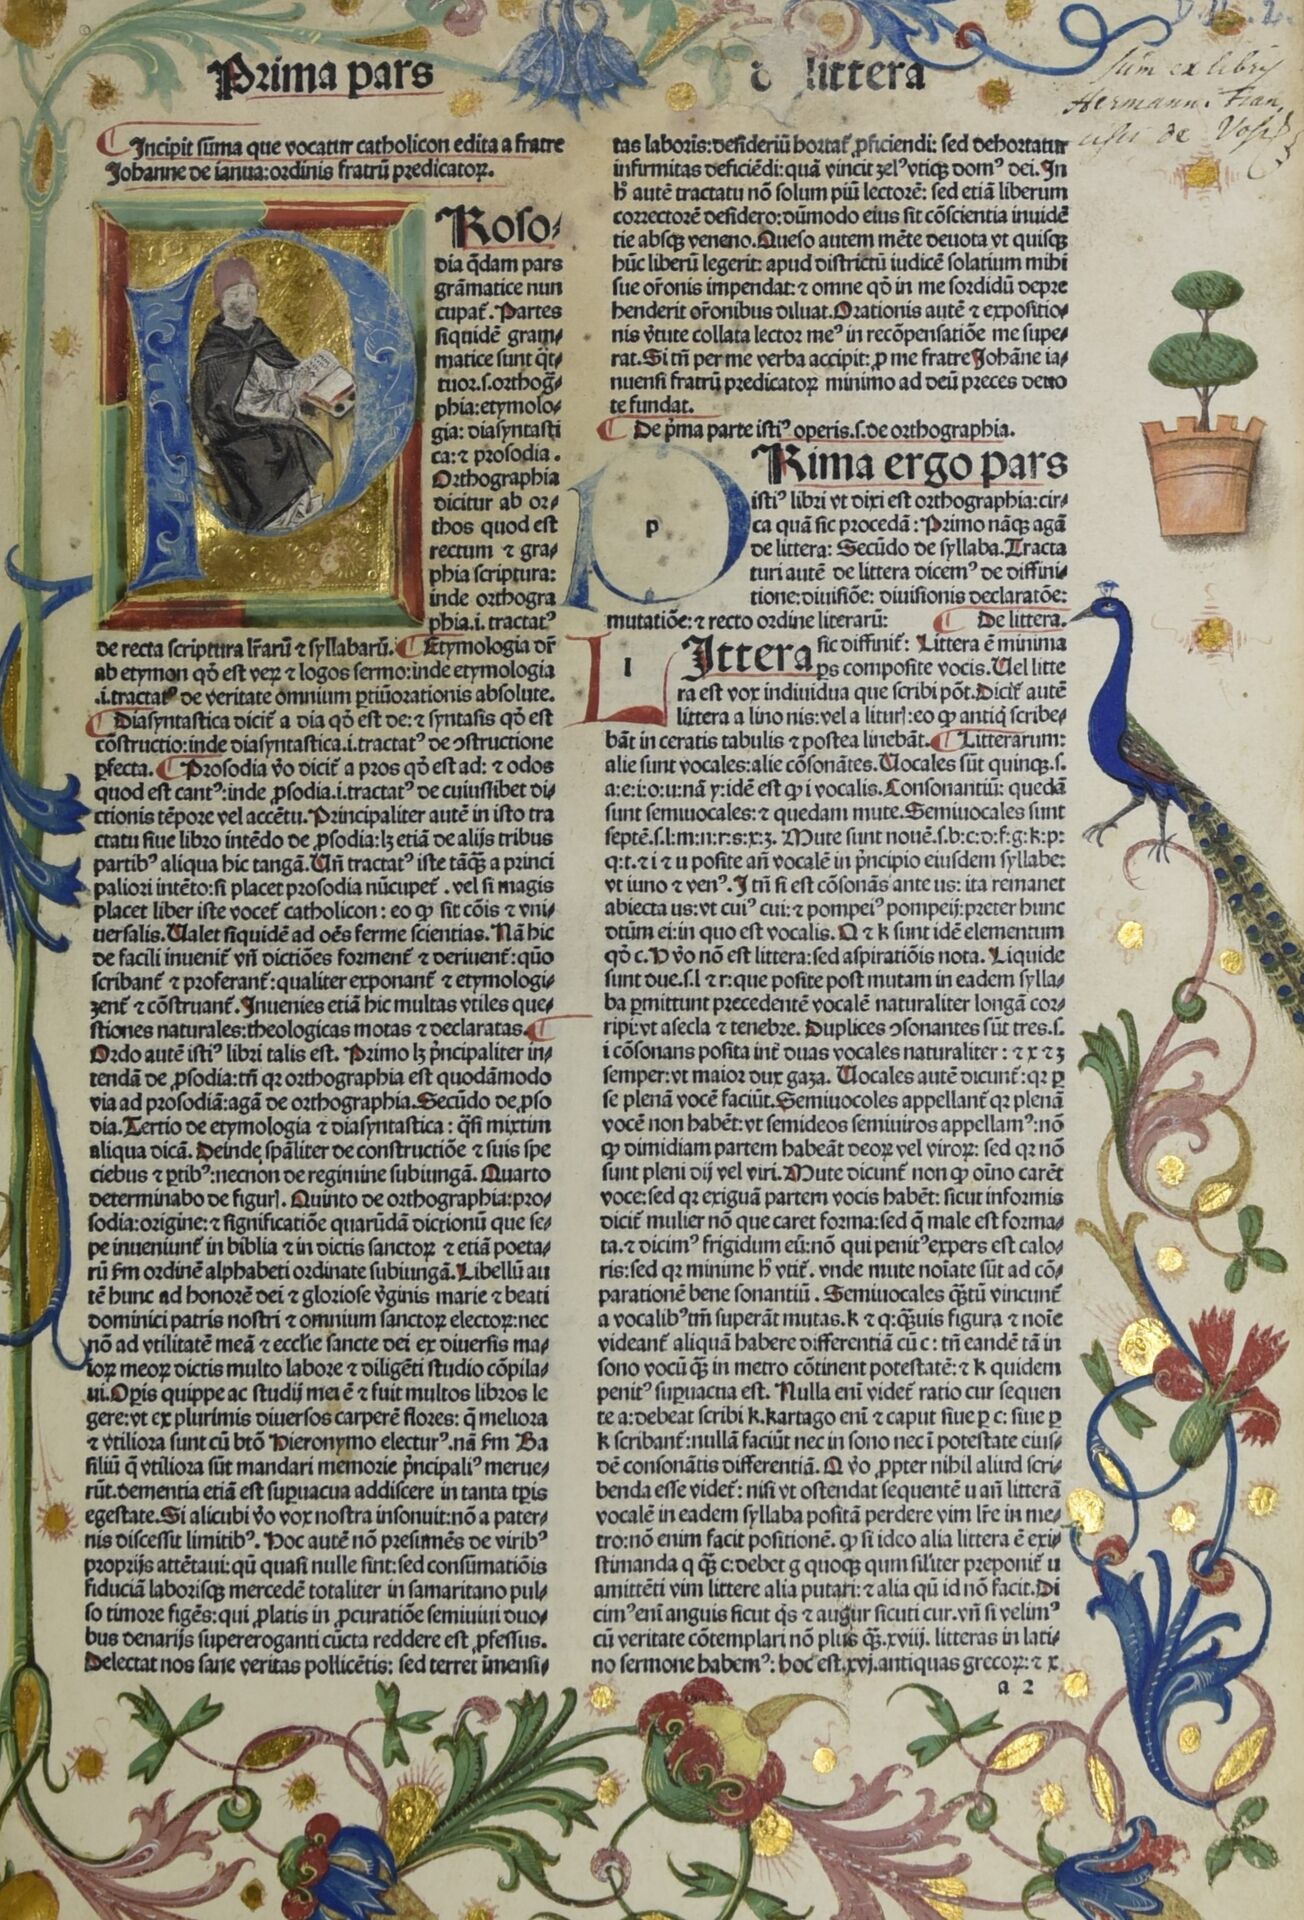 Prima pars
littera
Sum ex libris
Hermanni Fran
cisci de
Incipit sūma que vocatur catholicon edita a fratre
Johanne de ianua: ordinis fratrū predicatoꝝ.
Roso⸗
dia q̄dam pars
grāmatice nun
cupat᷑. Partes
siquidē gram⸗
matice sunt q̄t⸗
tuor. s. orthog̃⸗
phia: etymolo⸗
gia: diasyntasti
ca: ⁊ prosodia.
Orthographia
dicitur ab or⸗
thos quod est
rectum ⁊ gra⸗
phia scriptura:
inde orthogra
phia. i. tractatꝰ
de recta scriptura lr̄arū ⁊ syllabarū. Etymologia dr̄
ab etymon qd̄ est veꝝ ⁊ logos sermo: inde etymologia
.i. tractatꝰ de veritate omnium ꝑtiū orationis absolute.
Diasyntastica dicit᷑ a dia qd̄ est de: ⁊ syntasis qd̄ est
cōstructio: inde diasyntastica. i. tractatꝰ de ↄstructione
ꝑfecta. Prosodia v̄o dicit᷑ a pros qd̄ est ad: ⁊ odos
quod est cantꝰ: inde ꝓsodia. i. tractatꝰ de cuiuslibet di⸗
ctionis tēpore vel accētu. Principaliter autē in isto tra
ctatu siue libro intēdo de ꝓsodia: lꝫ etiā de alijs tribus
partibꝰ aliqua hic tangā. Un̄ tractatꝰ iste tāqꝫ a princi
paliori intēto: si placet prosodia nūcupet᷑. vel si magis
placet liber iste vocet᷑ catholicon: eo ꝙ sit cōis ⁊ vni⸗
uersalis. Ualet siquidē ad oēs ferme scientias. Nā hic
de facili inueniet᷑ vn̄ dictiōes forment᷑ ⁊ deriuent᷑: quō
scribant᷑ ⁊ proferant᷑: qualiter exponant᷑ ⁊ etymologi⸗
zent᷑ ⁊ cōstruant᷑. Inuenies etiā hic multas vtiles que⸗
stiones naturales: theologicas motas ⁊ declaratas.
Ordo autē istiꝰ libri talis est. Primo lꝫ p̄ncipaliter in⸗
tendā de ꝓsodia: tn̄ qꝛ orthographia est quodāmodo
via ad prosodiā: agā de orthographia. Secūdo de ꝓso
dia. Tertio de etymologia ⁊ diasyntastica: q̄si mixtim
aliqua dicā. Deinde sp̄aliter de constructiōe ⁊ suis spe
ciebus ⁊ ꝑtibꝰ: necnon de regimine subiungā. Quarto
determinabo de figuris. Quinto de orthographia: pro⸗
sodia: origine: ⁊ significatiōe quarūdā dictionū que se⸗
pe inueniunt᷑ in biblia ⁊ in dictis sanctoꝝ ⁊ etiā poeta⸗
rū ẜm ordinē alphabeti ordinate subiungā. Libellū au
tē hunc ad honorē dei ⁊ gloriose v̄ginis marie ⁊ beati
dominici patris nostri ⁊ omnium sanctoꝝ electoꝝ: nec
nō ad vtilitatē meā ⁊ eccl̄ie sancte dei ex diuersis ma⸗
ioꝝ meoꝝ dictis multo labore ⁊ diligēti studio cōpila⸗
ui. Oꝑis quippe ac studij mei ē ⁊ fuit multos libros le
gere: vt ex plurimis diuersos carperē flores: q̄ meliora
⁊ vtiliora sunt cū btō Hieronymo electurꝰ. nā ẜm Ba
siliū q̄ vtiliora sūt mandari memorie p̄ncipaliꝰ merue⸗
rūt. dementia etiā est suꝑuacua addiscere in tanta tꝑis
egestate. Si alicubi v̄o vox nostra insonuit: nō a pater⸗
nis discessit limitibꝰ. Hoc autē nō presumēs de viribꝰ
proprijs attētaui: qū quasi nulle sint: sed consūmatiōis
fiduciā laborisqꝫ mercedē totaliter in samaritano pul⸗
so timore figēs: qui ꝓlatis in ꝓcuratiōe semiuiui duo⸗
bus denarijs supereroganti cūcta reddere est ꝓfessus.
Delectat nos sane veritas pollicētis: sed terret īmensi⸗
tas laboris: desideriū hortat᷑ ꝓficiendi: sed dehortatur
infirmitas deficiēdi: quā vincit zelꝰ vtiqꝫ domꝰ dei. In
h̄ autē tractatu nō solum piū lectorē: sed etiā liberum
correctorē desidero: dūmodo eius sit cōscientia inuidē
tie absqꝫ veneno. Queso autem mēte deuota vt quisqꝫ
hūc liberū legerit: apud districtū iudicē solatium mihi
sue or̄onis impendat: ⁊ omne qd̄ in me sordidū depre
henderit or̄onibus diluat. Orationis autē ⁊ expositio⸗
nis v̄tute collata lector meꝰ in recōpensatiōe me supe⸗
rat. Si tn̄ per me verba accipit: ꝓ me fratre Johāne ia⸗
nuensi fratrū predicatoꝝ minimo ad deū preces deuo
te fundat.
De p̄ma parte istiꝰ operis. s. de orthographia.
p
Rima ergo pars
istiꝰ libri vt dixi est orthographia: cir⸗
ca quā sic procedā: Primo nāqꝫ agā
de littera: Secūdo de syllaba. Tracta
turi autē de littera dicemꝰ de diffini⸗
tione: diuisiōe: diuisionis declaratōe:
mutatiōe: ⁊ recto ordine literarū: De littera.
l
Ittera sic diffinit᷑: Littera ē minima
ꝑs composite vocis. Uel litte
ra est vox indiuidua que scribi pōt. Dicit᷑ autē
littera a lino nis: vel a lituris: eo ꝙ antiq̇ scribe⸗
bāt in ceratis tabulis ⁊ postea linebāt. Litterarum:
alie sunt vocales: alie cōsonātes. Uocales sūt quinqꝫ. s.
a: e: i: o: u: nā y: idē est ꝙ i vocalis. Consonantiū: quedā
sunt semiuocales: ⁊ quedam mute. Semiuocales sunt
septē. s. l: m: n: r: s: x: z. Mute sunt nouē. s. b: c: d: f: g: k: p:
q: t. ⁊ i ⁊ u posite an̄ vocalē in p̄ncipio eiusdem syllabe:
vt iuno ⁊ venꝰ. I tn̄ si est cōsonās ante us: ita remanet
abiecta us: vt cuiꝰ cui: ⁊ pompeiꝰ pompeij: preter hunc
dtūm ei: in quo est vocalis. Q ⁊ k sunt idē elementum
qd̄ c. H v̄o nō est littera: sed aspiratiōis nota. Liquide
sunt due. s. l ⁊ r: que posite post mutam in eadem sylla⸗
ba ꝑmittunt precedentē vocalē naturaliter longā cor⸗
ripi: vt asecla ⁊ tenebre. Duplices ↄsonantes sūt tres. s.
i cōsonans posita int᷑ duas vocales naturaliter: ⁊ x ⁊ z
semper: vt maior dux gaza. Uocales autē dicunt᷑: qꝛ ꝑ
se plenā vocē faciūt. Semiuocoles appellant᷑ qꝛ plenā
vocē non habēt: vt semideos semiuiros appellamꝰ: nō
ꝙ dimidiam partem habeāt deoꝝ vel viroꝝ: sed qꝛ nō
sunt pleni dij vel viri. Mute dicunt᷑ non ꝙ oīno carēt
voce: sed qꝛ exiguā partem vocis habēt: sicut informis
dicit᷑ mulier nō que caret forma: sed q̄ male est forma⸗
ta. ⁊ dicimꝰ frigidum eū: nō qui penitꝰ expers est calo⸗
ris: sed qꝛ minime h̄ vtit᷑. vnde mute noīate sūt ad cō⸗
parationē bene sonantiū. Semiuocales q̄ꝫtū vincunt᷑
a vocalibꝰ tm̄ superāt mutas. k ⁊ q: q̄ꝫuis figura ⁊ noīe
videant᷑ aliquā habere differentiā cū c: tn̄ eandē tā in
sono vocū q̄ꝫ in metro cōtinent potestatē: ⁊ k quidem
penitꝰ suꝑuacua est. Nulla eni videt᷑ ratio cur sequen
te a: debeat scribi k. kartago eni ⁊ caput siue ꝑ c: siue ꝑ
k scribant᷑: nullā faciūt nec in sono nec ī potestate eius⸗
dē consonātis differentiā. Q v̄o ꝓpter nihil aliud scri⸗
benda esse videt᷑: nisi vt ostendat sequentē u an̄ litterā
vocalē in eadem syllaba positā perdere vim lr̄e in me⸗
tro: nō enim facit positionē. ꝙ si ideo alia littera ē exi⸗
stimanda q q̄ꝫ c: debet g quoqꝫ qum sil̄iter preponit᷑ u
amittēti vim littere alia putari: ⁊ alia qū id nō facit. Di
cimꝰ eni anguis sicut q̇s ⁊ augur sicuti cur. vn̄ si velimꝰ
cū veritate cōtemplari nō plus q̄ꝫ. xviij. litteras in lati⸗
no sermone habemꝰ: hoc est. xvj. antiquas grecoꝝ: ⁊ x
a 2